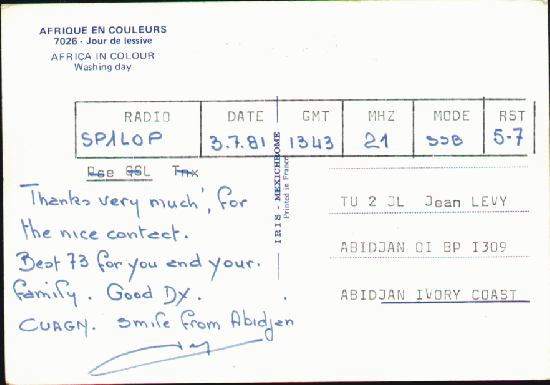 AFRIQUE EN COULEURS
7026 - Jour de lessive
AFRICA IN COLOUR
Washing day
RADIO DATE GMT MHZ MODE RST
SP1LOP 3.7.81 1343 21 SSB 5-7
Pse QSL Tnx
IRIS - MEXICHROME
Printed in France
Thanks very much, for
the nice contact.
Best 73 for you and your.
family. Good DX.
CUAGN. smile from Abidjan
TU 2 JL Jean LEVY
ABIDJAN OI BP I309
ABIDJAN IVORY COAST